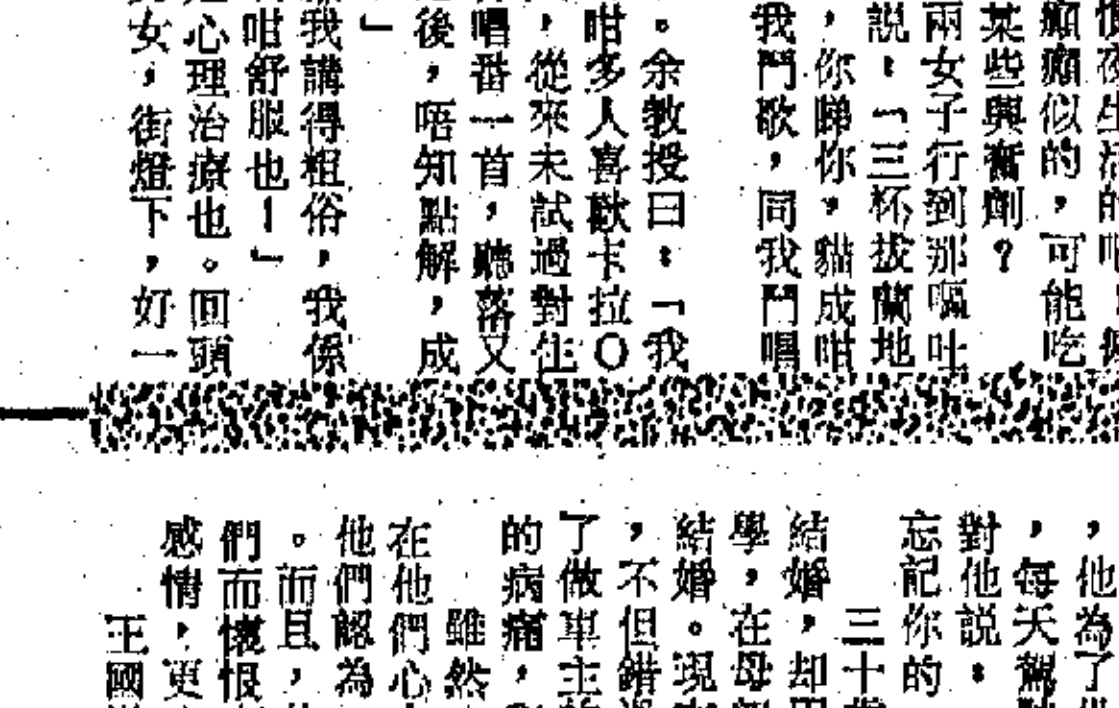 癲癲似的，可能吃
某些興奮劑？
兩女子行到那嘔吐
説：「三杯拔蘭地
，你睇你，貓成咁
我門歌，同我門唱
。余教授曰：「我
咁多人喜歡卡拉O
，從來未試過對住
唱番一首，聽落又
後，唔知點解，成
」
我講得粗俗，我係
咁舒服也！」
心理治療也。回頭
女，街燈下，好一
，他為了
，每天駕
對他説：
忘記你的
三十
結婚，却
學，在母
結婚。現
，不但錯
了做車主
的病痛，
雖然
在他們心
他們認為
。而且，
們而懷恨
感情，更
王國